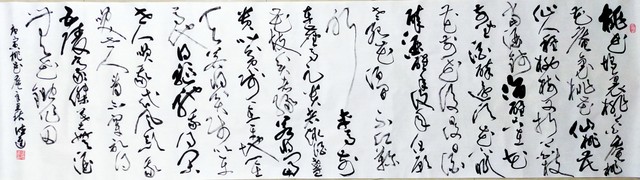 桃花坞里桃花庵桃
花庵里桃花仙桃花
仙人种桃树又折花枝
当酒钱酒醒只在花
前坐酒醉还须花下眠
花前花后日复日酒
醉酒醒年复年但愿
老死花酒间不愿鞠
躬车马前
车尘马足贵者趣酒盏
花枝贫者缘若将富
贵比贫者一在平地一
在天若将贫贱比车
马他得驱驰我得闲
世人笑我忒风颠我
笑世人看不穿不见
五陵豪杰墓无酒
无花锄作田
唐寅桃花庵